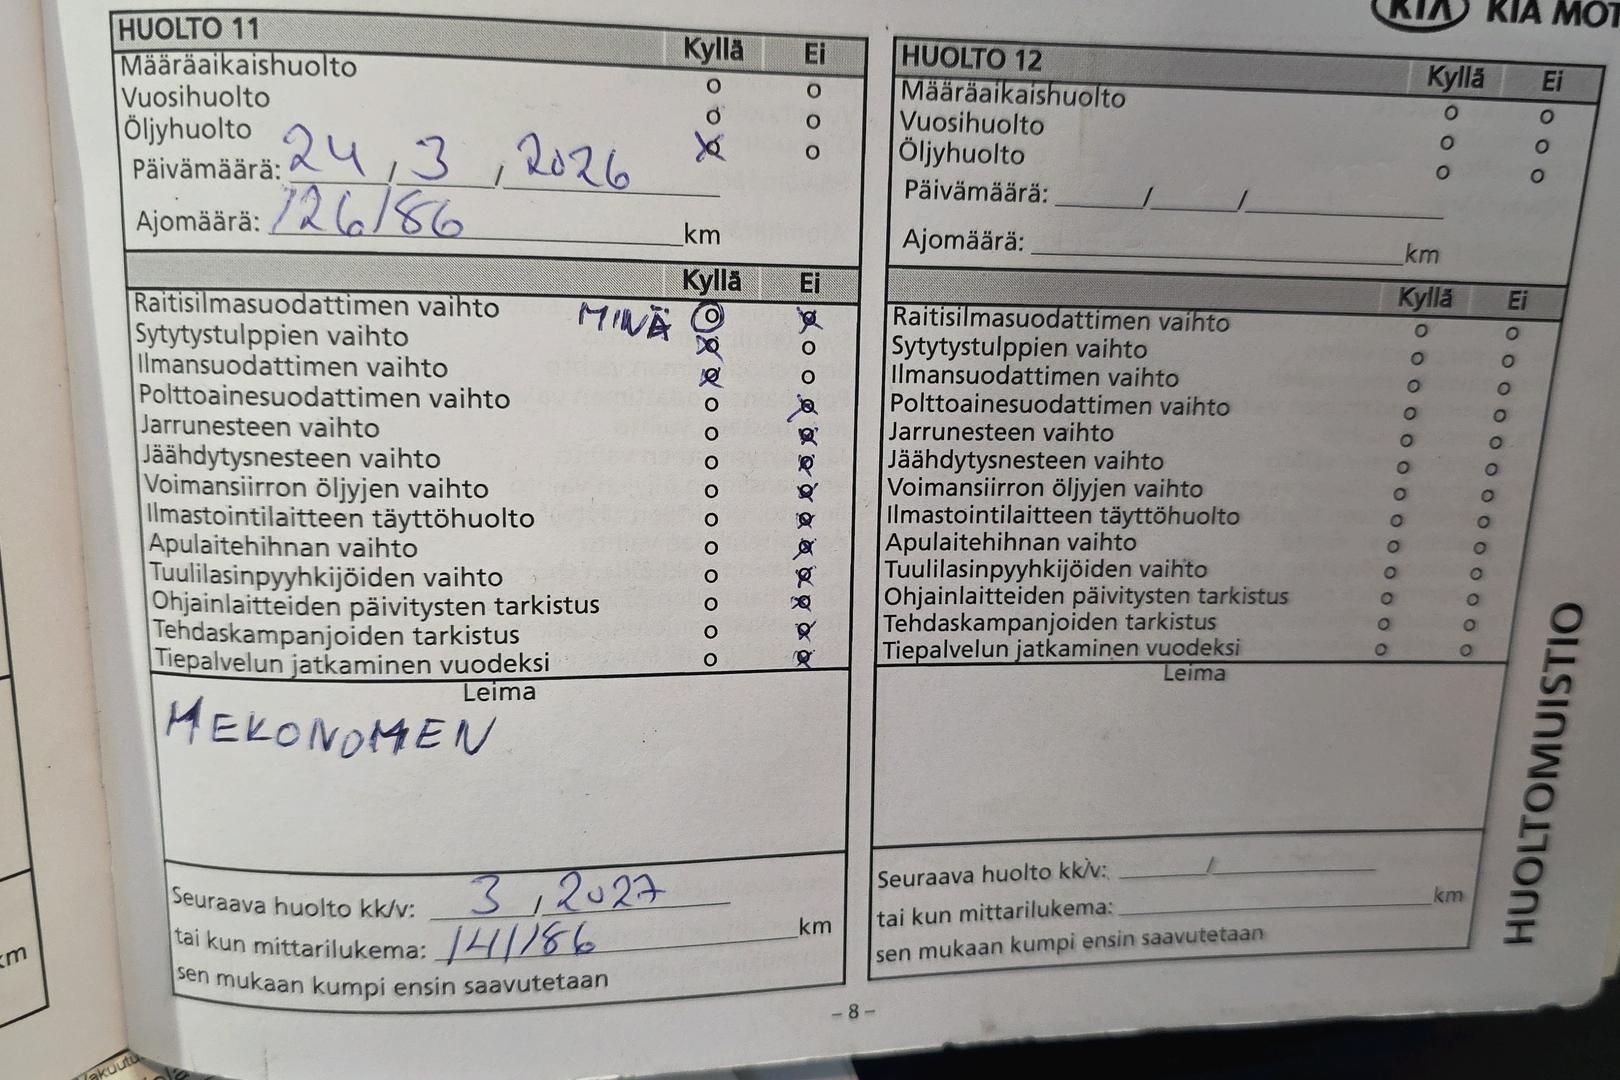 KIA KIA MOT
HUOLTO 11 Kyllä Ei
Määräaikaishuolto
Vuosihuolto
Öljyhuolto
Päivämäärä: 24 / 3 / 2026
Ajomäärä: 126186 km
Kyllä Ei
Raitisilmasuodattimen vaihto MINÄ
Sytytystulppien vaihto
Ilmansuodattimen vaihto
Polttoainesuodattimen vaihto
Jarrunesteen vaihto
Jäähdytysnesteen vaihto
Voimansiirron öljyjen vaihto
Ilmastointilaitteen täyttöhuolto
Apulaitehihnan vaihto
Tuulilasinpyyhkijöiden vaihto
Ohjainlaitteiden päivitysten tarkistus
Tehdaskampanjoiden tarkistus
Tiepalvelun jatkaminen vuodeksi
Leima
MEKONOMEN
Seuraava huolto kk/v: 3 / 2027
tai kun mittarilukema: 141186 km
sen mukaan kumpi ensin saavutetaan
HUOLTO 12 Kyllä Ei
Määräaikaishuolto
Vuosihuolto
Öljyhuolto
Päivämäärä: / /
Ajomäärä: km
Kyllä Ei
Raitisilmasuodattimen vaihto
Sytytystulppien vaihto
Ilmansuodattimen vaihto
Polttoainesuodattimen vaihto
Jarrunesteen vaihto
Jäähdytysnesteen vaihto
Voimansiirron öljyjen vaihto
Ilmastointilaitteen täyttöhuolto
Apulaitehihnan vaihto
Tuulilasinpyyhkijöiden vaihto
Ohjainlaitteiden päivitysten tarkistus
Tehdaskampanjoiden tarkistus
Tiepalvelun jatkaminen vuodeksi
Leima
Seuraava huolto kk/v: /
tai kun mittarilukema: km
sen mukaan kumpi ensin saavutetaan
HUOLTOMUISTIO
- 8 -
km